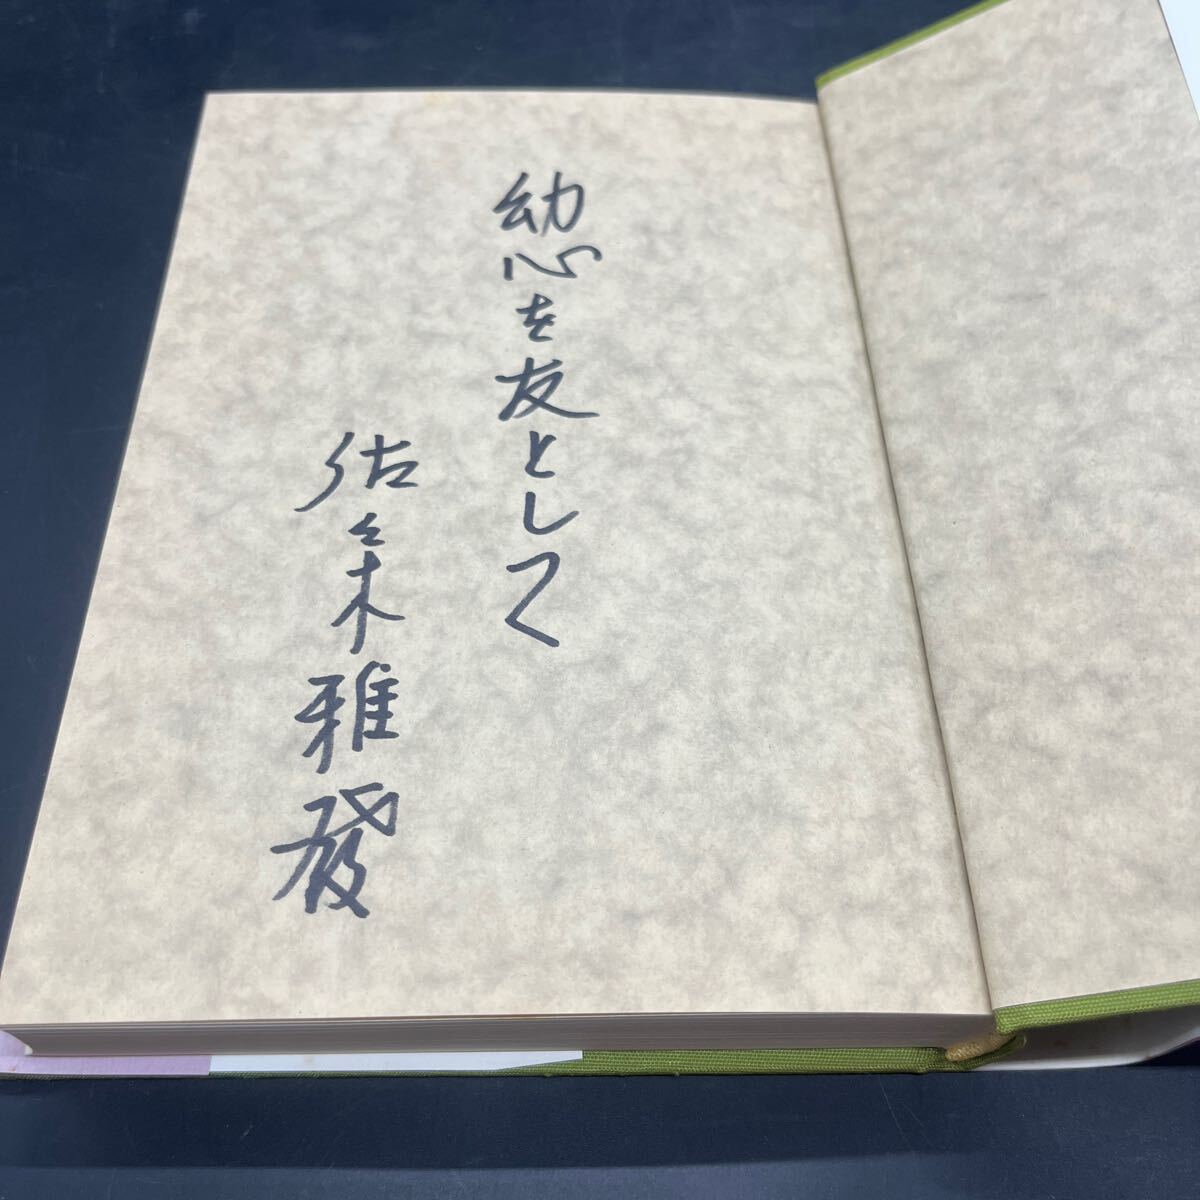 幼心を友として
佐々木雅發